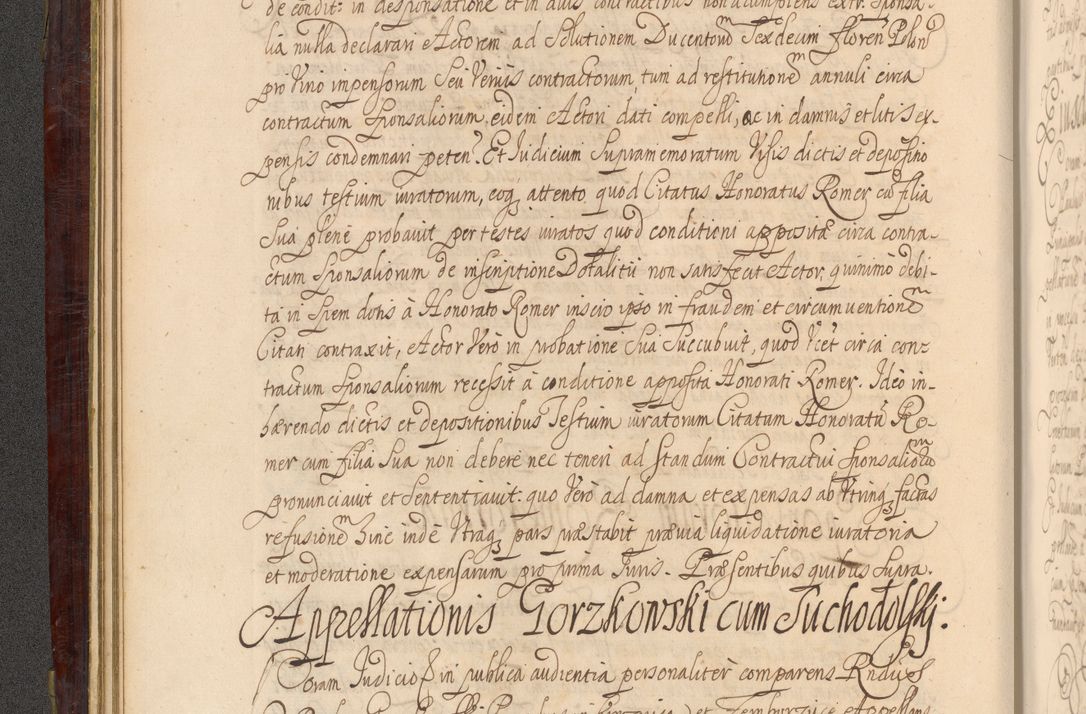 de condit: in desponsatione et in aliis contractibus non adimplens extr. sponsa-
lia nulla declarari Actorem ad Solutionem Ducentoru͂ Sexdecim floren Polon
pro Vino impensorum Seu Veniis contractorum, tum ad restitutione͂ annuli circa
contractum Sponsaliorum eidem Actori dati compelli, ac in damnis et litis ex-
pensis condemnari peten. Et Judicium Supramemoratum Visis dictis et depositio
nibus testium iuratorum, eoq attento quod Citatus Honoratus Romer cu͂ filia
Sua plenè probavit per testes iuratos quod conditioni appositæ circa contra-
ctum Sponsaliorum de inscriptione Dotalitii non satisfecit Actor, quinimò debi-
ta in Spem dotis à Honorato Romer inscio ipso in fraudem et circumventione͂
Citati contraxit, Actor Verò in probatione Sua Succubuit, quod licet circa con-
tractum Sponsaliorum recessit à conditione apposita Honorati Romer. Ideò in-
hærendo dictis et depositionibus Testium iuratorum Citatum Honoratu͂ Ro-
mer cum filia Sua non debere nec teneri ad standum Contractui Sponsalioru͂
pronunciavit et Sententiavit: quo Verò ad damna et expensas ab Utrinq factas
refusione͂ hinc inde Utraq pars præstabit prævia liquidatione iuratoria
et moderatione expensarum pro prima Juris. Præsentibus quibus supra.
Appellationis Gorzkowski cum Suchodolskj.
Coram Judicio & in publica audientia personaliter comparens Rndus
et Appellans